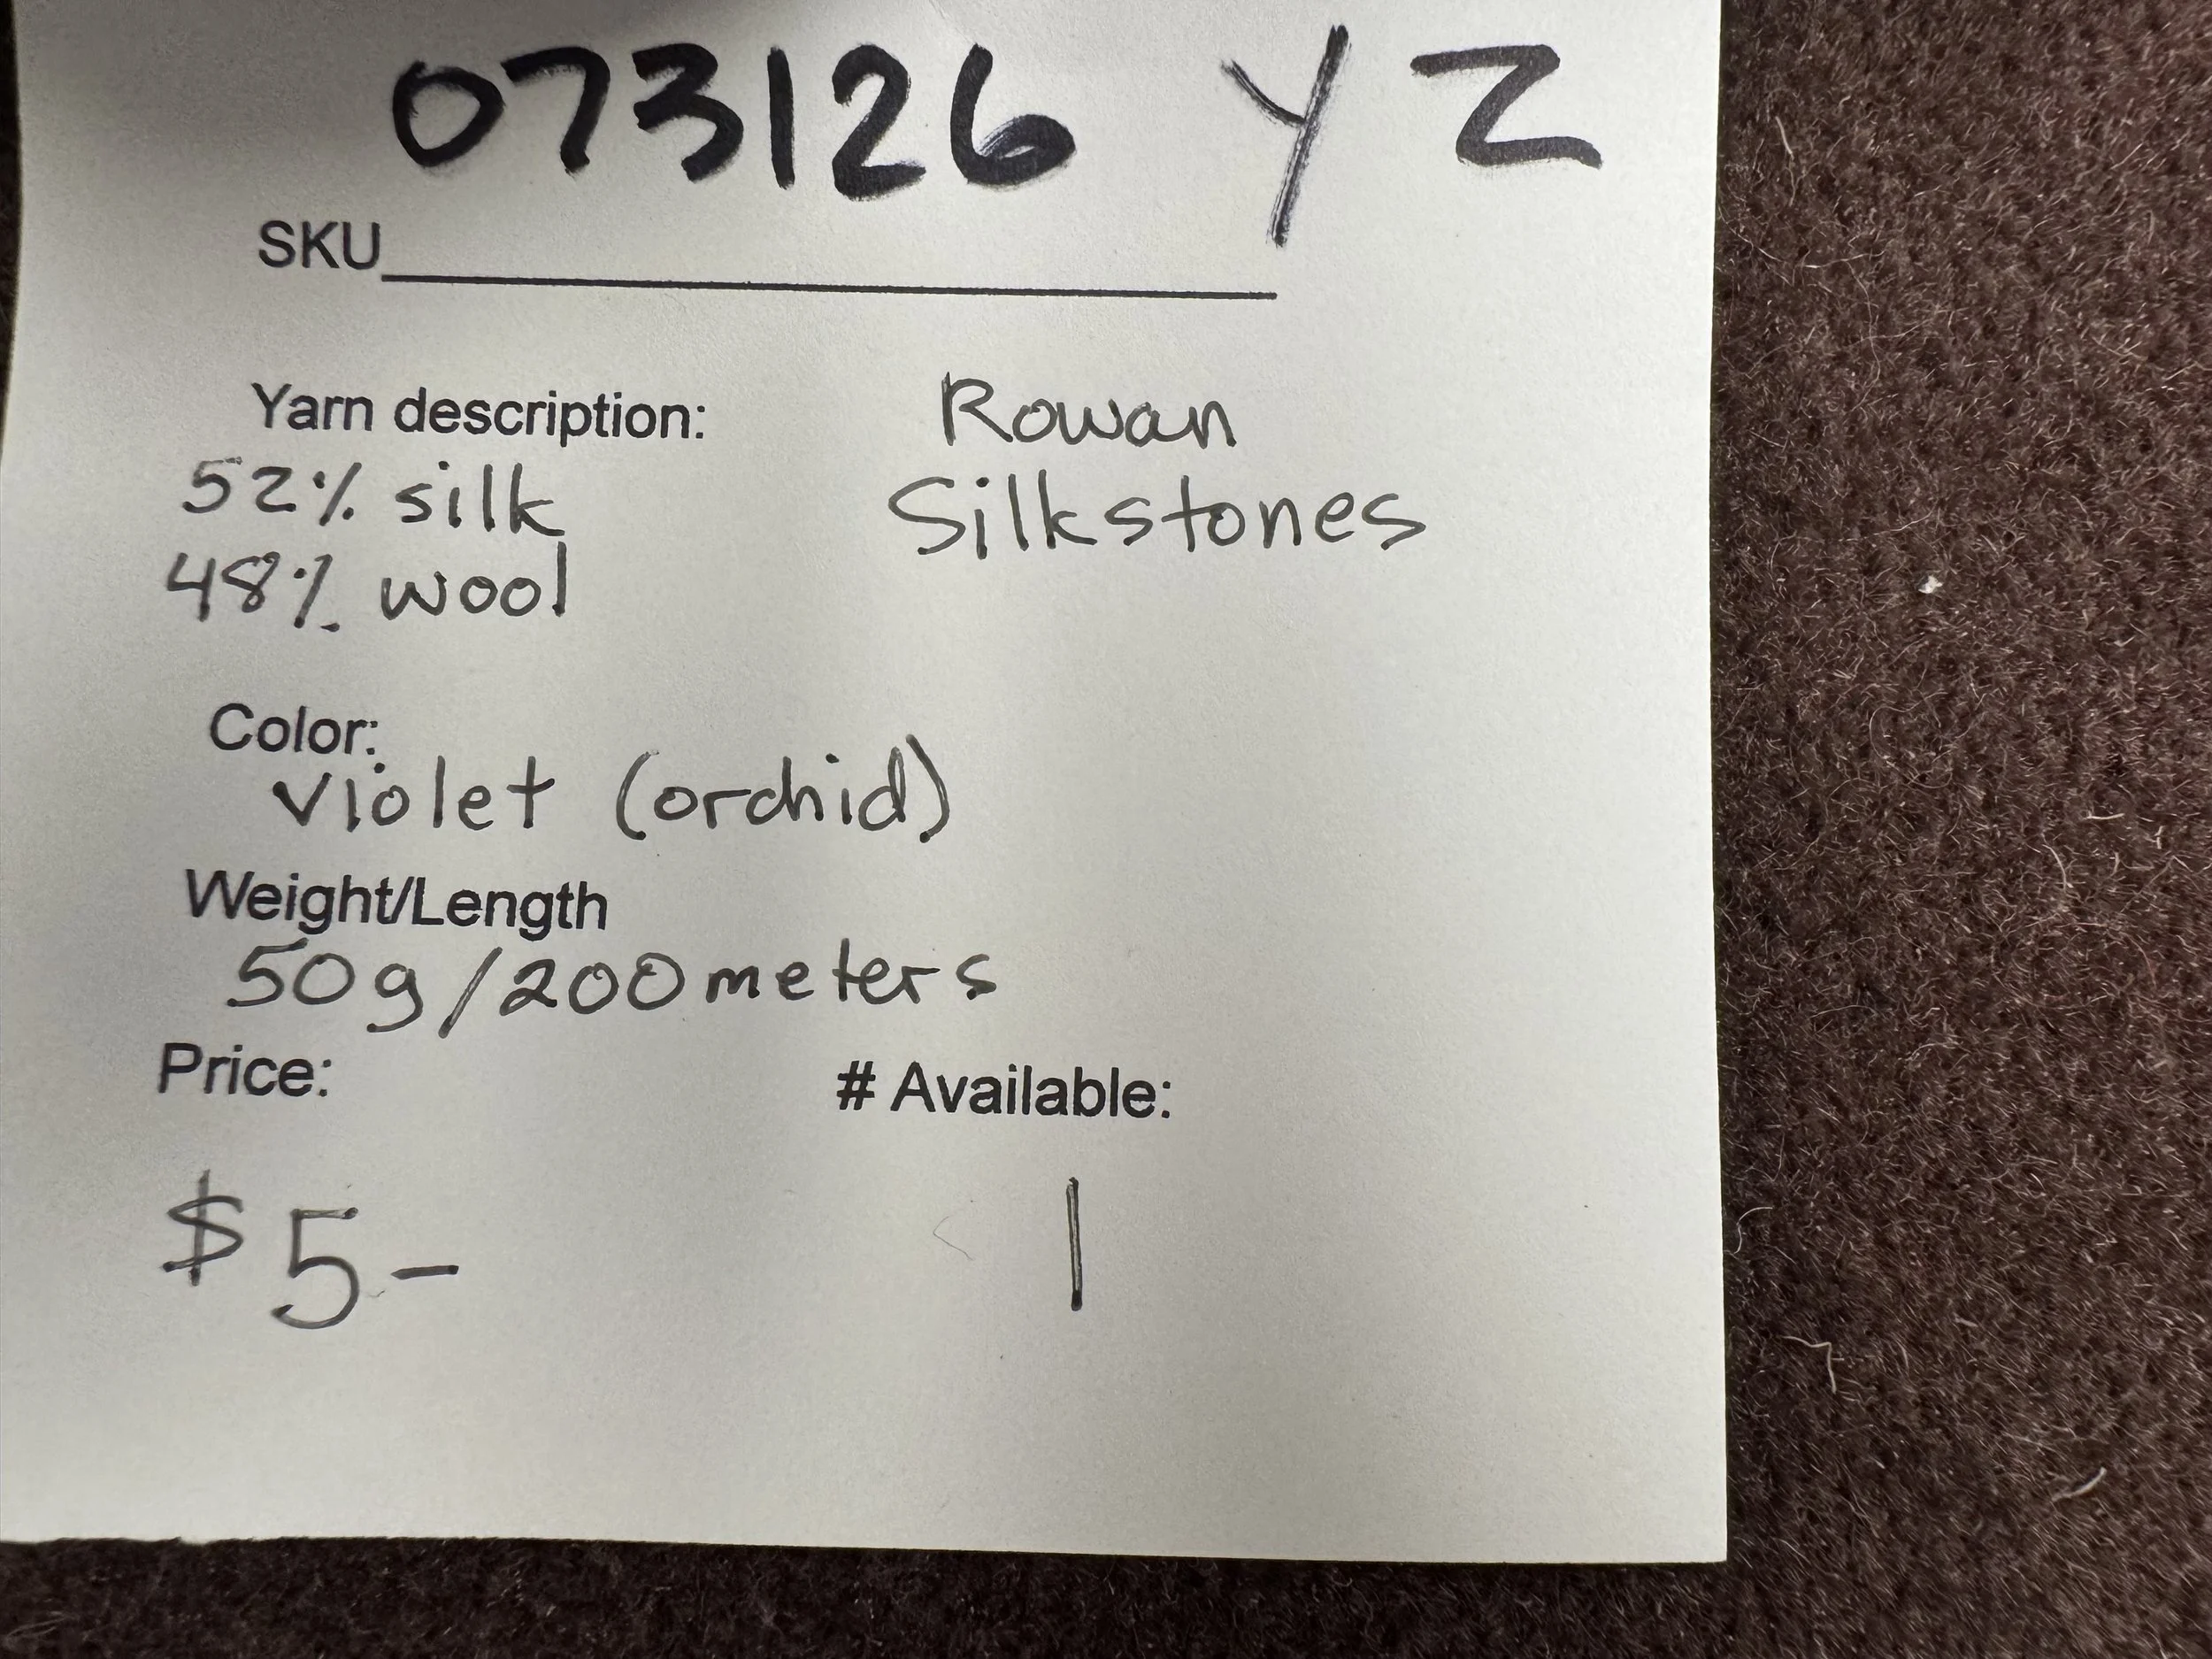 073126 YZ
SKU
Yarn description: Rowan
52% silk Silkstones
48% wool
Color:
violet (orchid)
Weight/Length
50g/200 meters
Price: # Available:
$5- 1